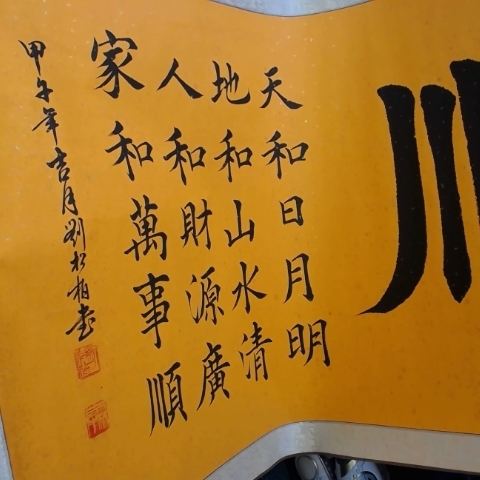 天和日月明
地和山水清
人和財源廣
家和萬事順
甲午年吉月劉松柏書